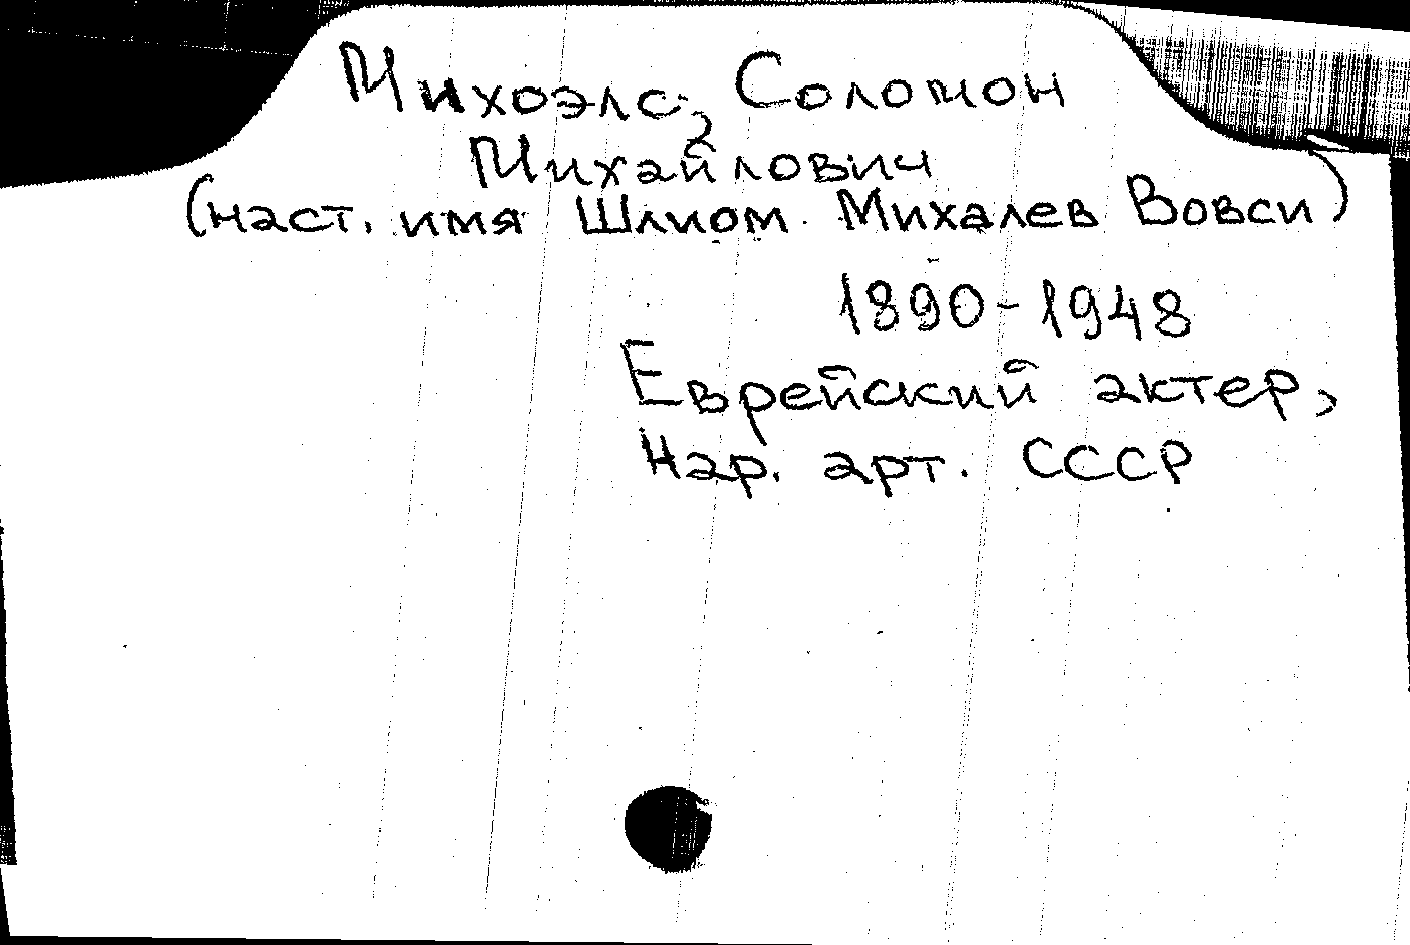 Михоэлс, Соломон
Михайлович
(наст. имя Шлиом Михалев Вовси)
1890-1948
Еврейский актер,
Нар. арт. СССР